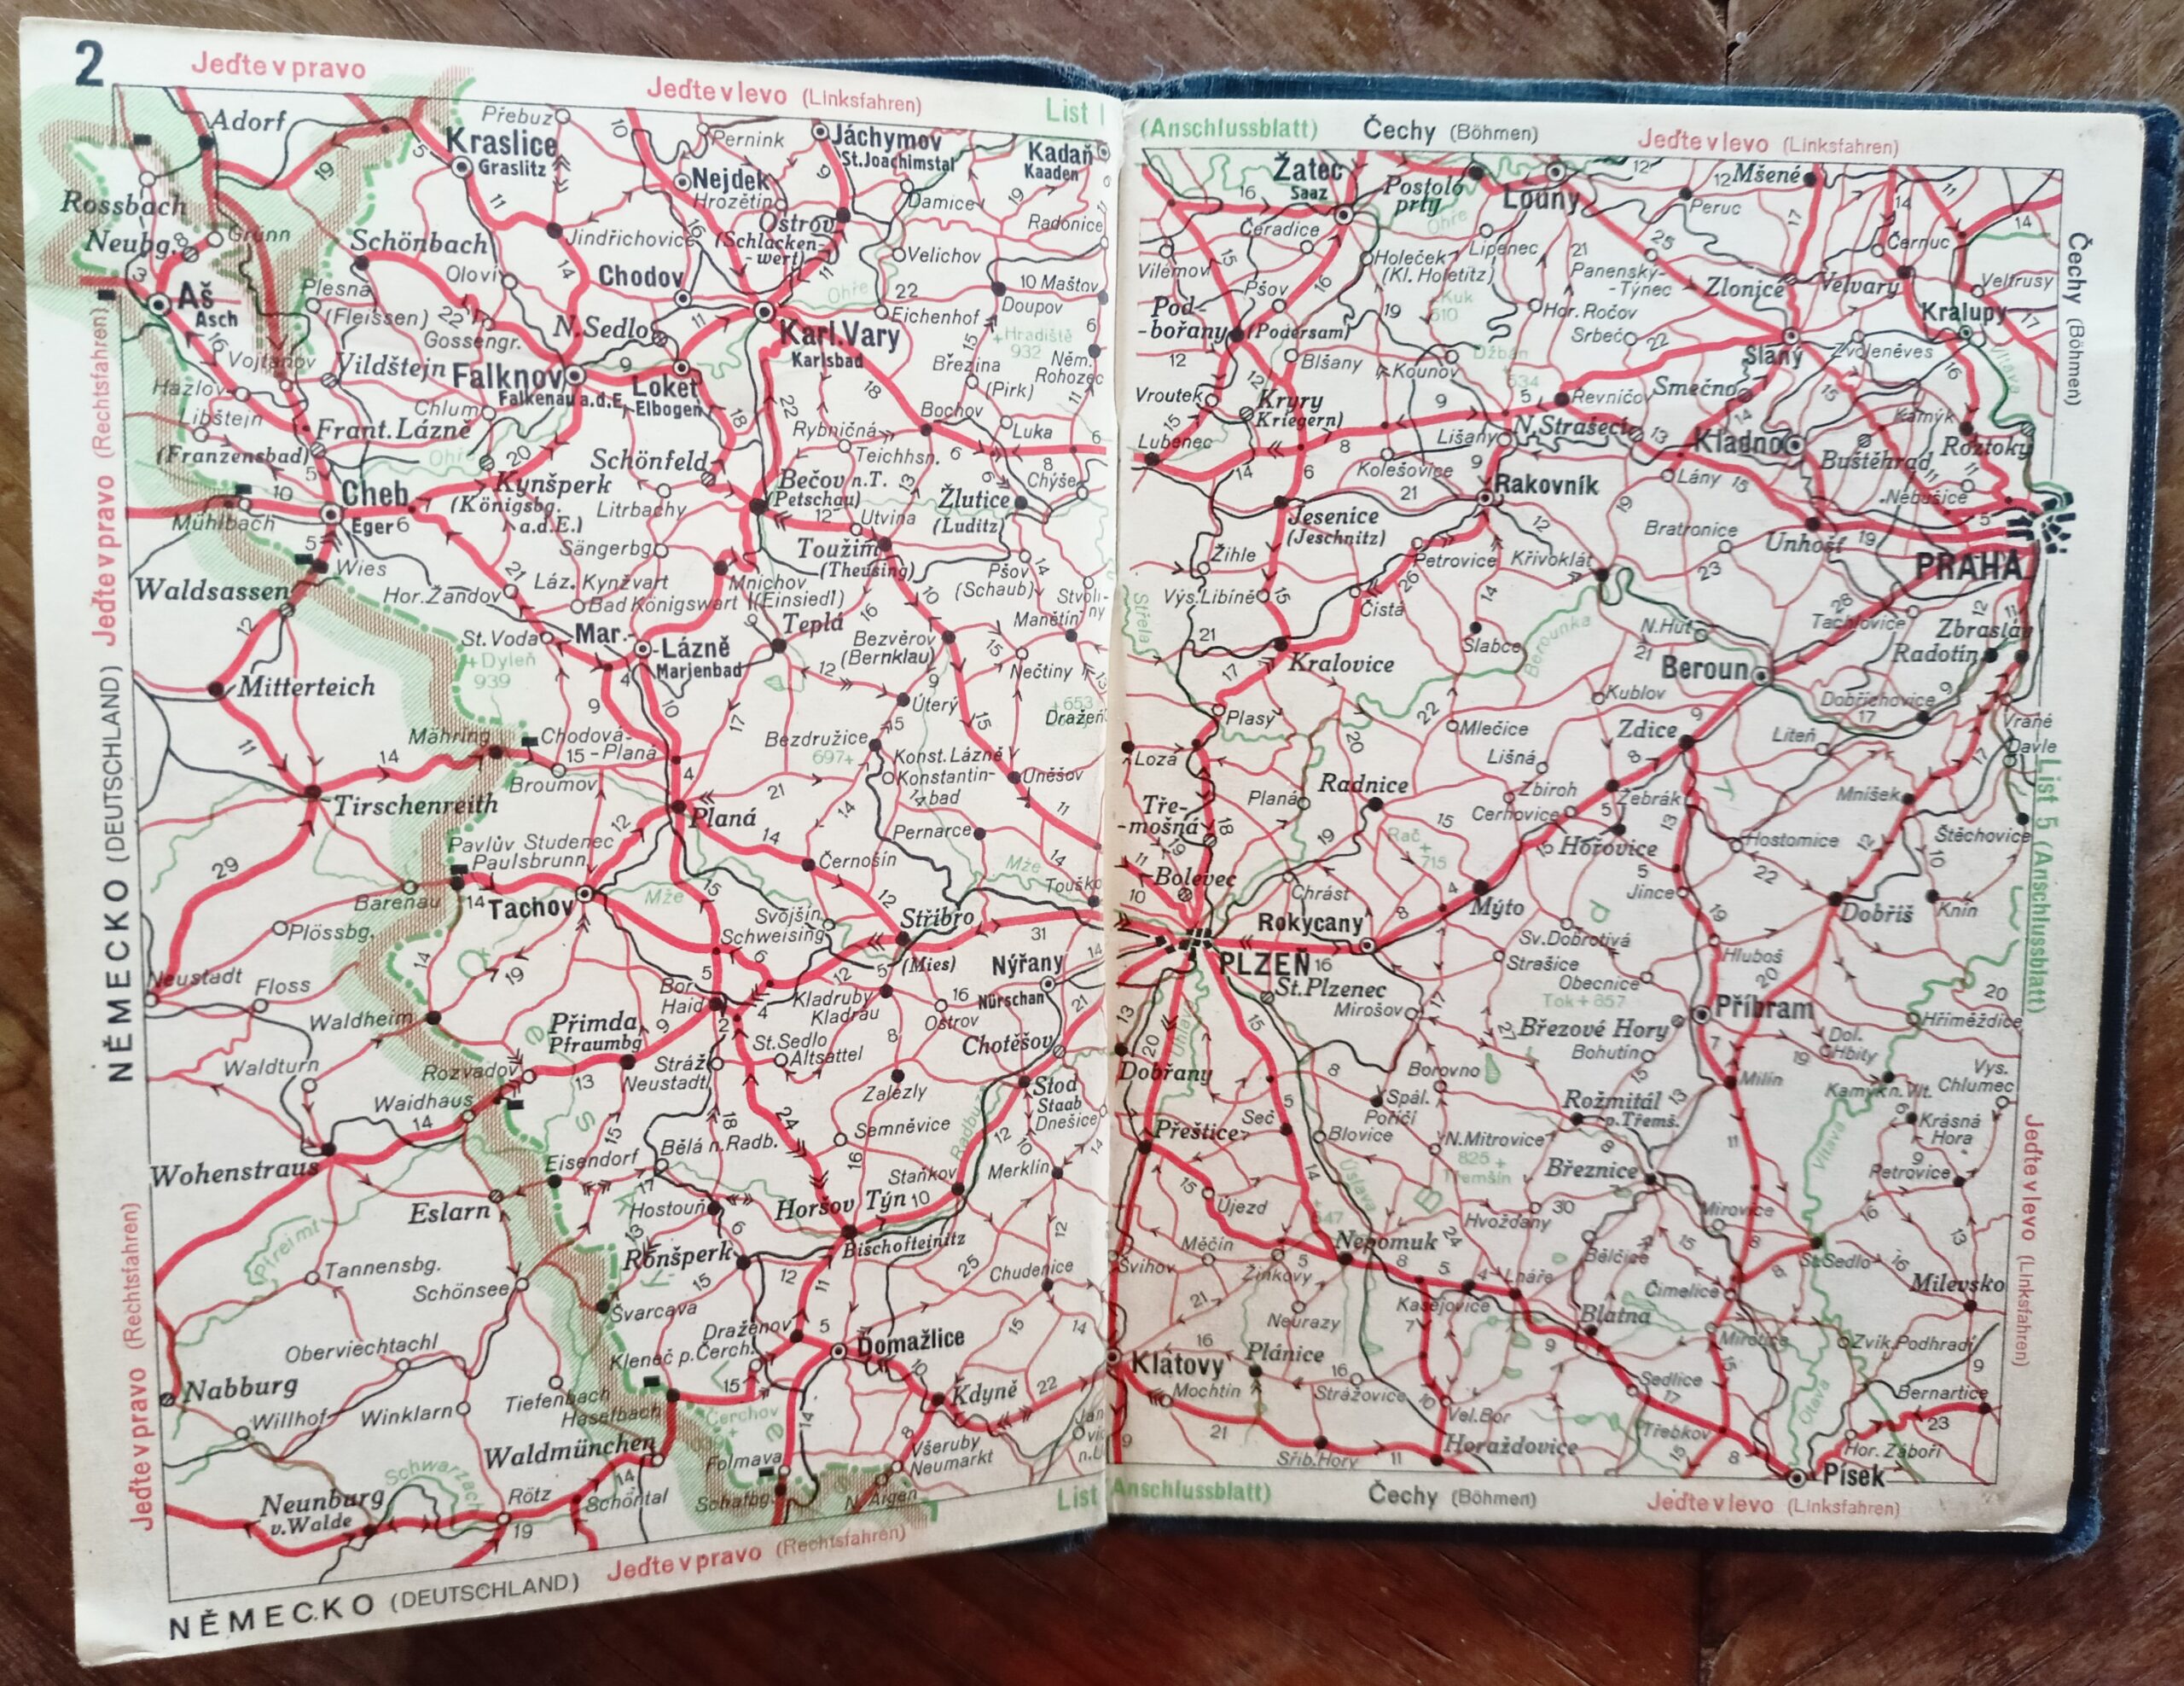 2
Jeďte v pravo
Jeďte v levo (Linksfahren)
List 1
(Anschlussblatt)
Čechy (Böhmen)
Jeďte v levo (Linksfahren)
Adorf
Přebuz
Pernink
Jáchymov
St.Joachimstal
Kadaň
Kaaden
Kraslice
Graslitz
Nejdek
Hrozětín
Damice
Radonice
Rossbach
Neubg.
Grünn
Schönbach
Jindřichovice
Ostrov
(Schlacken-
-wert)
Velichov
Olovi
Chodov
Ohře
10 Maštov
Doupov
Aš
Asch
Plesná
(Fleissen)
Gossengr.
N.Sedlo
Karl.Vary
Karlsbad
Eichenhof
Hradiště
932
Vojtanov
Vildštejn
Falknov
Falkenau a.d.E.
Loket
Elbogen
Březina
(Pirk)
Něm.
Rohozec
Hazlov
Libštejn
Chlum
Frant.Lázně
(Franzensbad)
Rybničná
Teichhsn.
Bochov
Luka
Schönfeld
Bečov n.T.
(Petschau)
Žlutice
(Luditz)
Chýše
Cheb
Eger
Kynšperk
(Königsbg.
a.d.E.)
Litrbachy
Utvina
Mühlbach
Wies
Sängerbg
Toužim
(Theusing)
Waldsassen
Hor.Žandov
Láz. Kynžvart
Bad Königswart
Mnichov
(Einsiedl)
Pšov
(Schaub)
Stvoli-
ny
Manětín
St.Voda
Mar.-
-Lázně
Marienbad
Teplá
Bezvěrov
(Bernklau)
Nečtiny
Dyleň
939
Mitterteich
Úterý
Dražeň
Mähring
Chodová-
-Planá
Broumov
Bezdružice
697
Konst.Lázně
Konstantin-
bad
Úněšov
Tirschenreith
Planá
Pernarce
Pavlův Studenec
Paulsbrunn
Černošín
Mže
Touško
Bärenau
Tachov
Mže
Plössbg.
Svojšín
Schweising
Stříbro
(Mies)
Nýřany
Nürschan
Neustadt
Floss
Bor
Haid
Kladruby
Kladrau
Ostrov
Waldheim
Přimda
Pfraumbg
St.Sedlo
Altsattel
Chotěšov
Waldturn
Rozvadov
Stráž
Neustadtl
Zálezly
Stod
Staab
Dnešice
Waidhaus
Wohenstraus
Bělá n.Radb.
Semněvice
Radbuza
Eisendorf
Staňkov
Merklín
Eslarn
Hostouň
Horšov Týn
Bischofteinitz
Pfreimt
Ronšperk
Tannensbg.
Schönsee
Chudenice
Švarcava
Draženov
Domažlice
Oberviechtach
Kleneč p.Čerch.
Nabburg
Tiefenbach
Haselbach
Kdyně
Willhof
Winklarn
Čerchov
Waldmünchen
Folmava
Všeruby
Neumarkt
Schwarzach
Schafbg.
N. Aigen
Neunburg
v.Walde
Rötz
Schöntal
NĚMECKO (DEUTSCHLAND)
Jeďte v pravo (Rechtsfahren)
Jeďte v pravo (Rechtsfahren)
NĚMECKO (DEUTSCHLAND)
Jeďte v pravo (Rechtsfahren)
List
Žatec
Saaz
Postolo-
prty
Louny
Mšené
Peruc
Čeradice
Ohře
Lipenec
Černuc
Vilémov
Holeček
(Kl. Holetitz)
Panenský-
-Týnec
Zlonice
Velvary
Veltrusy
Pšov
Pod-
-bořany
(Podersam)
Hor.Ročov
Srbeč
Kralupy
Slaný
Zvoleněves
Blšany
Kounov
Džbán
534
Vroutek
Kryry
(Kriegern)
Řevničov
Smečno
Vltava
Lubenec
Lišany
N.Strašecí
Kladno
Kamýk
Roztoky
Buštěhrad
Kolešovice
Lány
Rakovník
Nebušice
Jesenice
(Jeschnitz)
Bratronice
Unhošť
PRAHA
Žihle
Petrovice
Křivoklát
Střela
Výs.Libíně
Čistá
Tachlovice
Zbraslav
Slabce
Berounka
N.Huť
Beroun
Radotín
Kralovice
Kublov
Dobřichovice
Plasy
Mlečice
Zdice
Liteň
Vrané
Davle
Loza
Lišná
Radnice
Zbiroh
Žebrák
Mníšek
Tře-
-mošná
Planá
Cerhovice
Hořovice
Hostomice
Štěchovice
Rač
715
Bolevec
Chrást
Jince
Mýto
Dobříš
Knín
Rokycany
PLZEŇ
Sv.Dobrotivá
Hluboš
St.Plzenec
Strašice
Obecnice
Mirošov
Tok+857
Příbram
Hříměždice
Březové Hory
Bohutín
Dol.
Hbity
Dobřany
Borovno
Milín
Kamýk n.Vlt.
Vys.
Chlumec
Spál.
Poříčí
Rožmitál
p.Třemš.
Seč
Krásná
Hora
Přeštice
Blovice
N.Mitrovice
825
Třemšín
Březnice
Vltava
Petrovice
Úslava
Újezd
Hvožďany
Mirovice
Měčín
Nepomuk
Bělčice
St.Sedlo
Švihov
Žinkovy
Lnáře
Čimelice
Milevsko
Kasejovice
Neurazy
Blatná
Mirotice
Zvík.Podhradí
Klatovy
Plánice
Strážovice
Sedlice
Otava
Bernartice
Mochtin
Vel.Bor
Třebkov
Horažďovice
Hor. Záboří
Stříb.Hory
Písek
Čechy (Böhmen)
List 5 (Anschlussblatt)
Jeďte v levo (Linksfahren)
Anschlussblatt)
Čechy (Böhmen)
Jeďte v levo (Linksfahren)